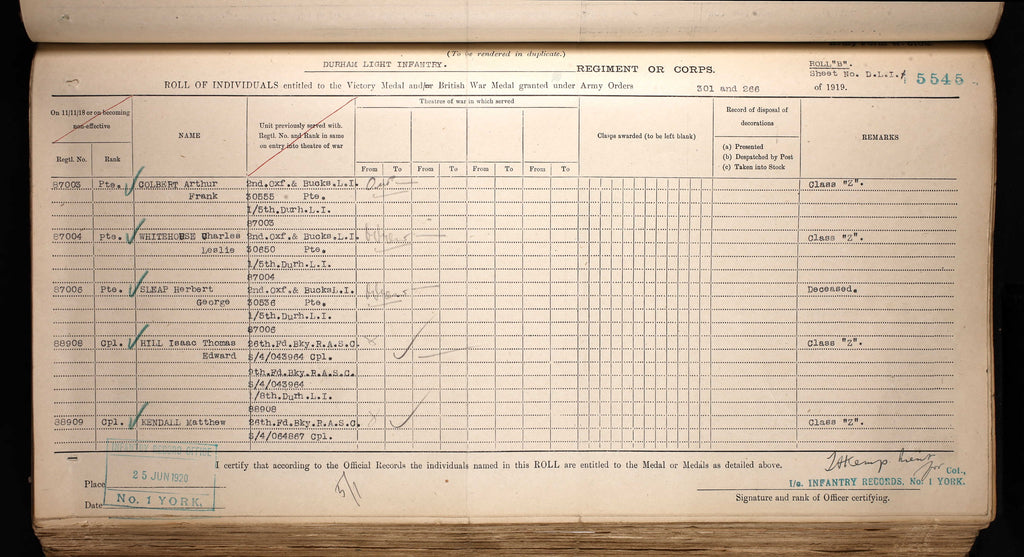 (To be rendered in duplicate.)
DURHAM LIGHT INFANTRY. REGIMENT OR CORPS.
ROLL "B".
Sheet No. D.L.I./ 5545
ROLL OF INDIVIDUALS entitled to the Victory Medal and/or British War Medal granted under Army Orders 301 and 266 of 1919.
On 11/11/18 or on becoming non-effective
Regtl. No. Rank
NAME
Unit previously served with. Regtl. No. and Rank in same on entry into theatre of war
Theatres of war in which served
From To From To From To From To
Clasps awarded (to be left blank)
Record of disposal of decorations
(a) Presented
(b) Despatched by Post
(c) Taken into Stock
REMARKS
87003 Pte. COLBERT Arthur 2nd.Oxf.& Bucks.L.I. Class "Z".
Frank 30555 Pte.
1/5th.Durh.L.I.
87003
87004 Pte. WHITEHOUSE Charles 2nd.Oxf.& Bucks.L.I. Class "Z".
Leslie 30650 Pte.
1/5th.Durh.L.I.
87004
87006 Pte. SLEAP Herbert 2nd.Oxf.& BucksL.I. Deceased.
George 30536 Pte.
1/5th.Durh.L.I.
87006
88908 Cpl. HILL Isaac Thomas 26th.Fd.Bky.R.A.S.C. Class "Z".
Edward S/4/043964 Cpl.
9th.Fd.Bky.R.A.S.C.
S/4/043964
1/8th.Durh.L.I.
88908
88909 Cpl. KENDALL Matthew 26th.Fd.Bky.R.A.S.C. Class "Z".
S/4/064867 Cpl.
I certify that according to the Official Records the individuals named in this ROLL are entitled to the Medal or Medals as detailed above.
INFANTRY RECORD OFFICE
25 JUN 1920
No. 1 YORK.
Place
Date
5/1
for Col.,
I/c. INFANTRY RECORDS, No. 1 YORK.
Signature and rank of Officer certifying.